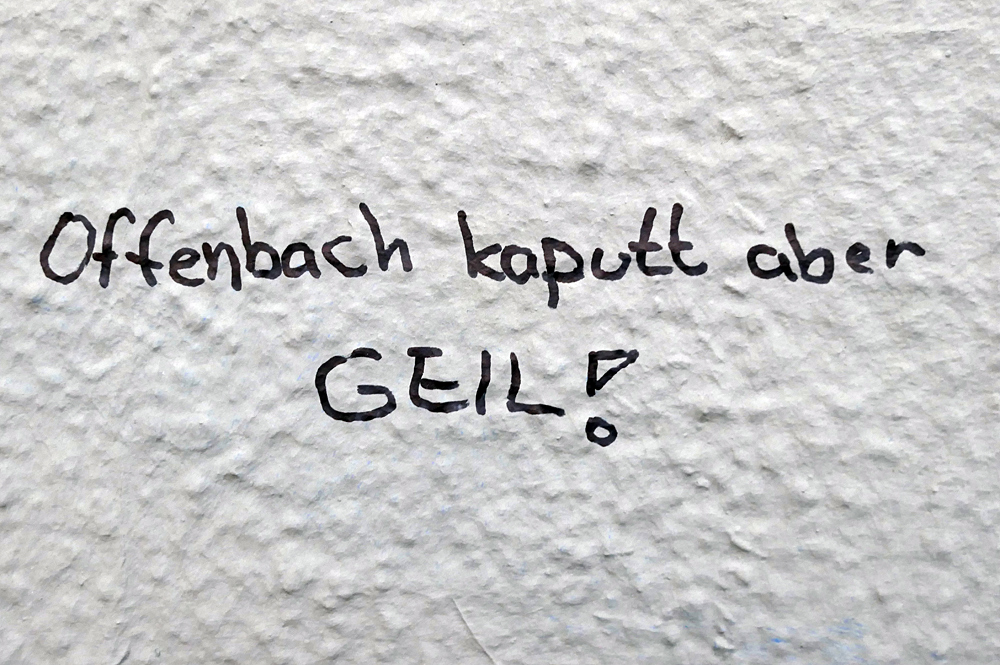 Offenbach kaputt aber
GEIL!